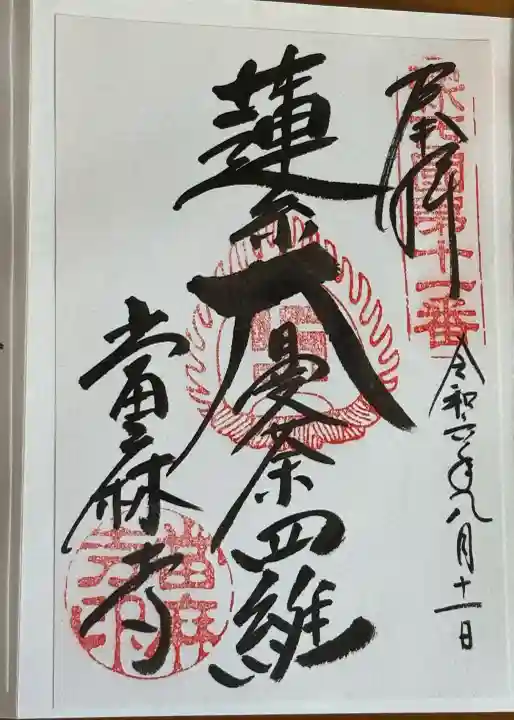 奉拝
新西國第十一番
令和六年八月十一日
蓮糸大曼荼羅
當麻寺
當麻寺印